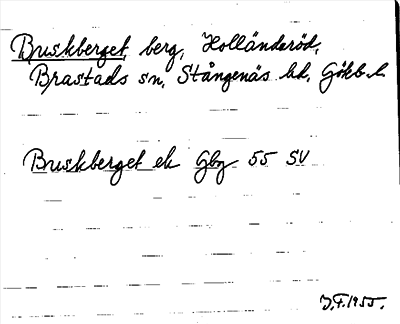 Buskberget, berg, Holländeröd,
Brastads sn, Stångenäs hd, Gökb. l.
Buskberget ek Gbg 55 SV
J.F. 1955.